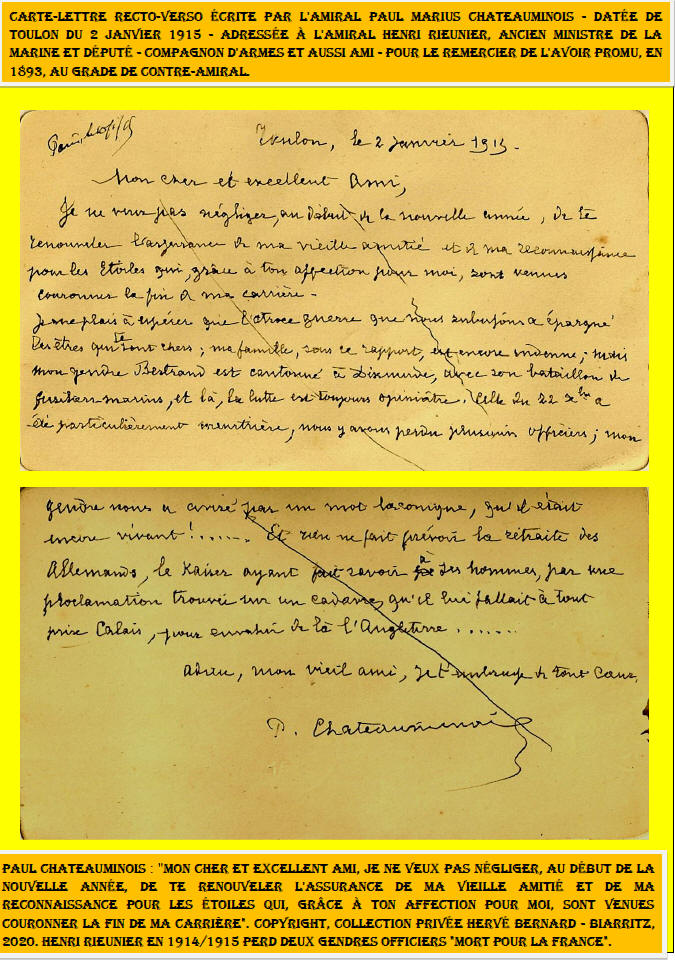 CARTE-LETTRE RECTO-VERSO ÉCRITE PAR L'AMIRAL PAUL MARIUS CHATEAUMINOIS - DATÉE DE
TOULON DU 2 JANVIER 1915 - ADRESSÉE À L'AMIRAL HENRI RIEUNIER, ANCIEN MINISTRE DE LA
MARINE ET DÉPUTÉ - COMPAGNON D'ARMES ET AUSSI AMI - POUR LE REMERCIER DE L'AVOIR PROMU, EN
1893, AU GRADE DE CONTRE-AMIRAL.
Toulon, le 2 Janvier 1915.
Mon cher et excellent Ami,
Je ne veux pas négliger, au début de la nouvelle année, de te
renouveler l'assurance de ma vieille amitié et de ma reconnaissance
pour les Etoiles qui, grâce à ton affection pour moi, sont venues
couronner la fin de ma carrière -
Je me plais à espérer que l'atroce guerre que nous subissons a épargné
les êtres qui te sont chers ; ma famille, sous ce rapport, est encore indemne ; mais
mon gendre Bertrand est cantonné à Dixmude, avec son bataillon de
fusiliers marins, et là, la lutte est toujours opiniâtre. Celle du 22 Xbre a
été particulièrement meurtrière, nous y avons perdu plusieurs officiers ; mon
gendre nous a avisé par un mot laconique, qu'il était
encore vivant !...... Et rien ne fait prévoir la retraite des
Allemands, le Kaiser ayant fait savoir à ses hommes, par une
proclamation trouvée sur un cadavre, qu'il lui fallait à tout
prix Calais, pour envahir de là l'Angleterre ......
Adieu, mon vieil ami, je t'embrasse de tout cœur.
P. Chateauminois
PAUL CHATEAUMINOIS : "MON CHER ET EXCELLENT AMI, JE NE VEUX PAS NÉGLIGER, AU DÉBUT DE LA
NOUVELLE ANNÉE, DE TE RENOUVELER L'ASSURANCE DE MA VIEILLE AMITIÉ ET DE MA
RECONNAISSANCE POUR LES ÉTOILES QUI, GRÂCE À TON AFFECTION POUR MOI, SONT VENUES
COURONNER LA FIN DE MA CARRIÈRE". COPYRIGHT, COLLECTION PRIVÉE HERVÉ BERNARD - BIARRITZ,
2020. HENRI RIEUNIER EN 1914/1915 PERD DEUX GENDRES OFFICIERS "MORT POUR LA FRANCE".